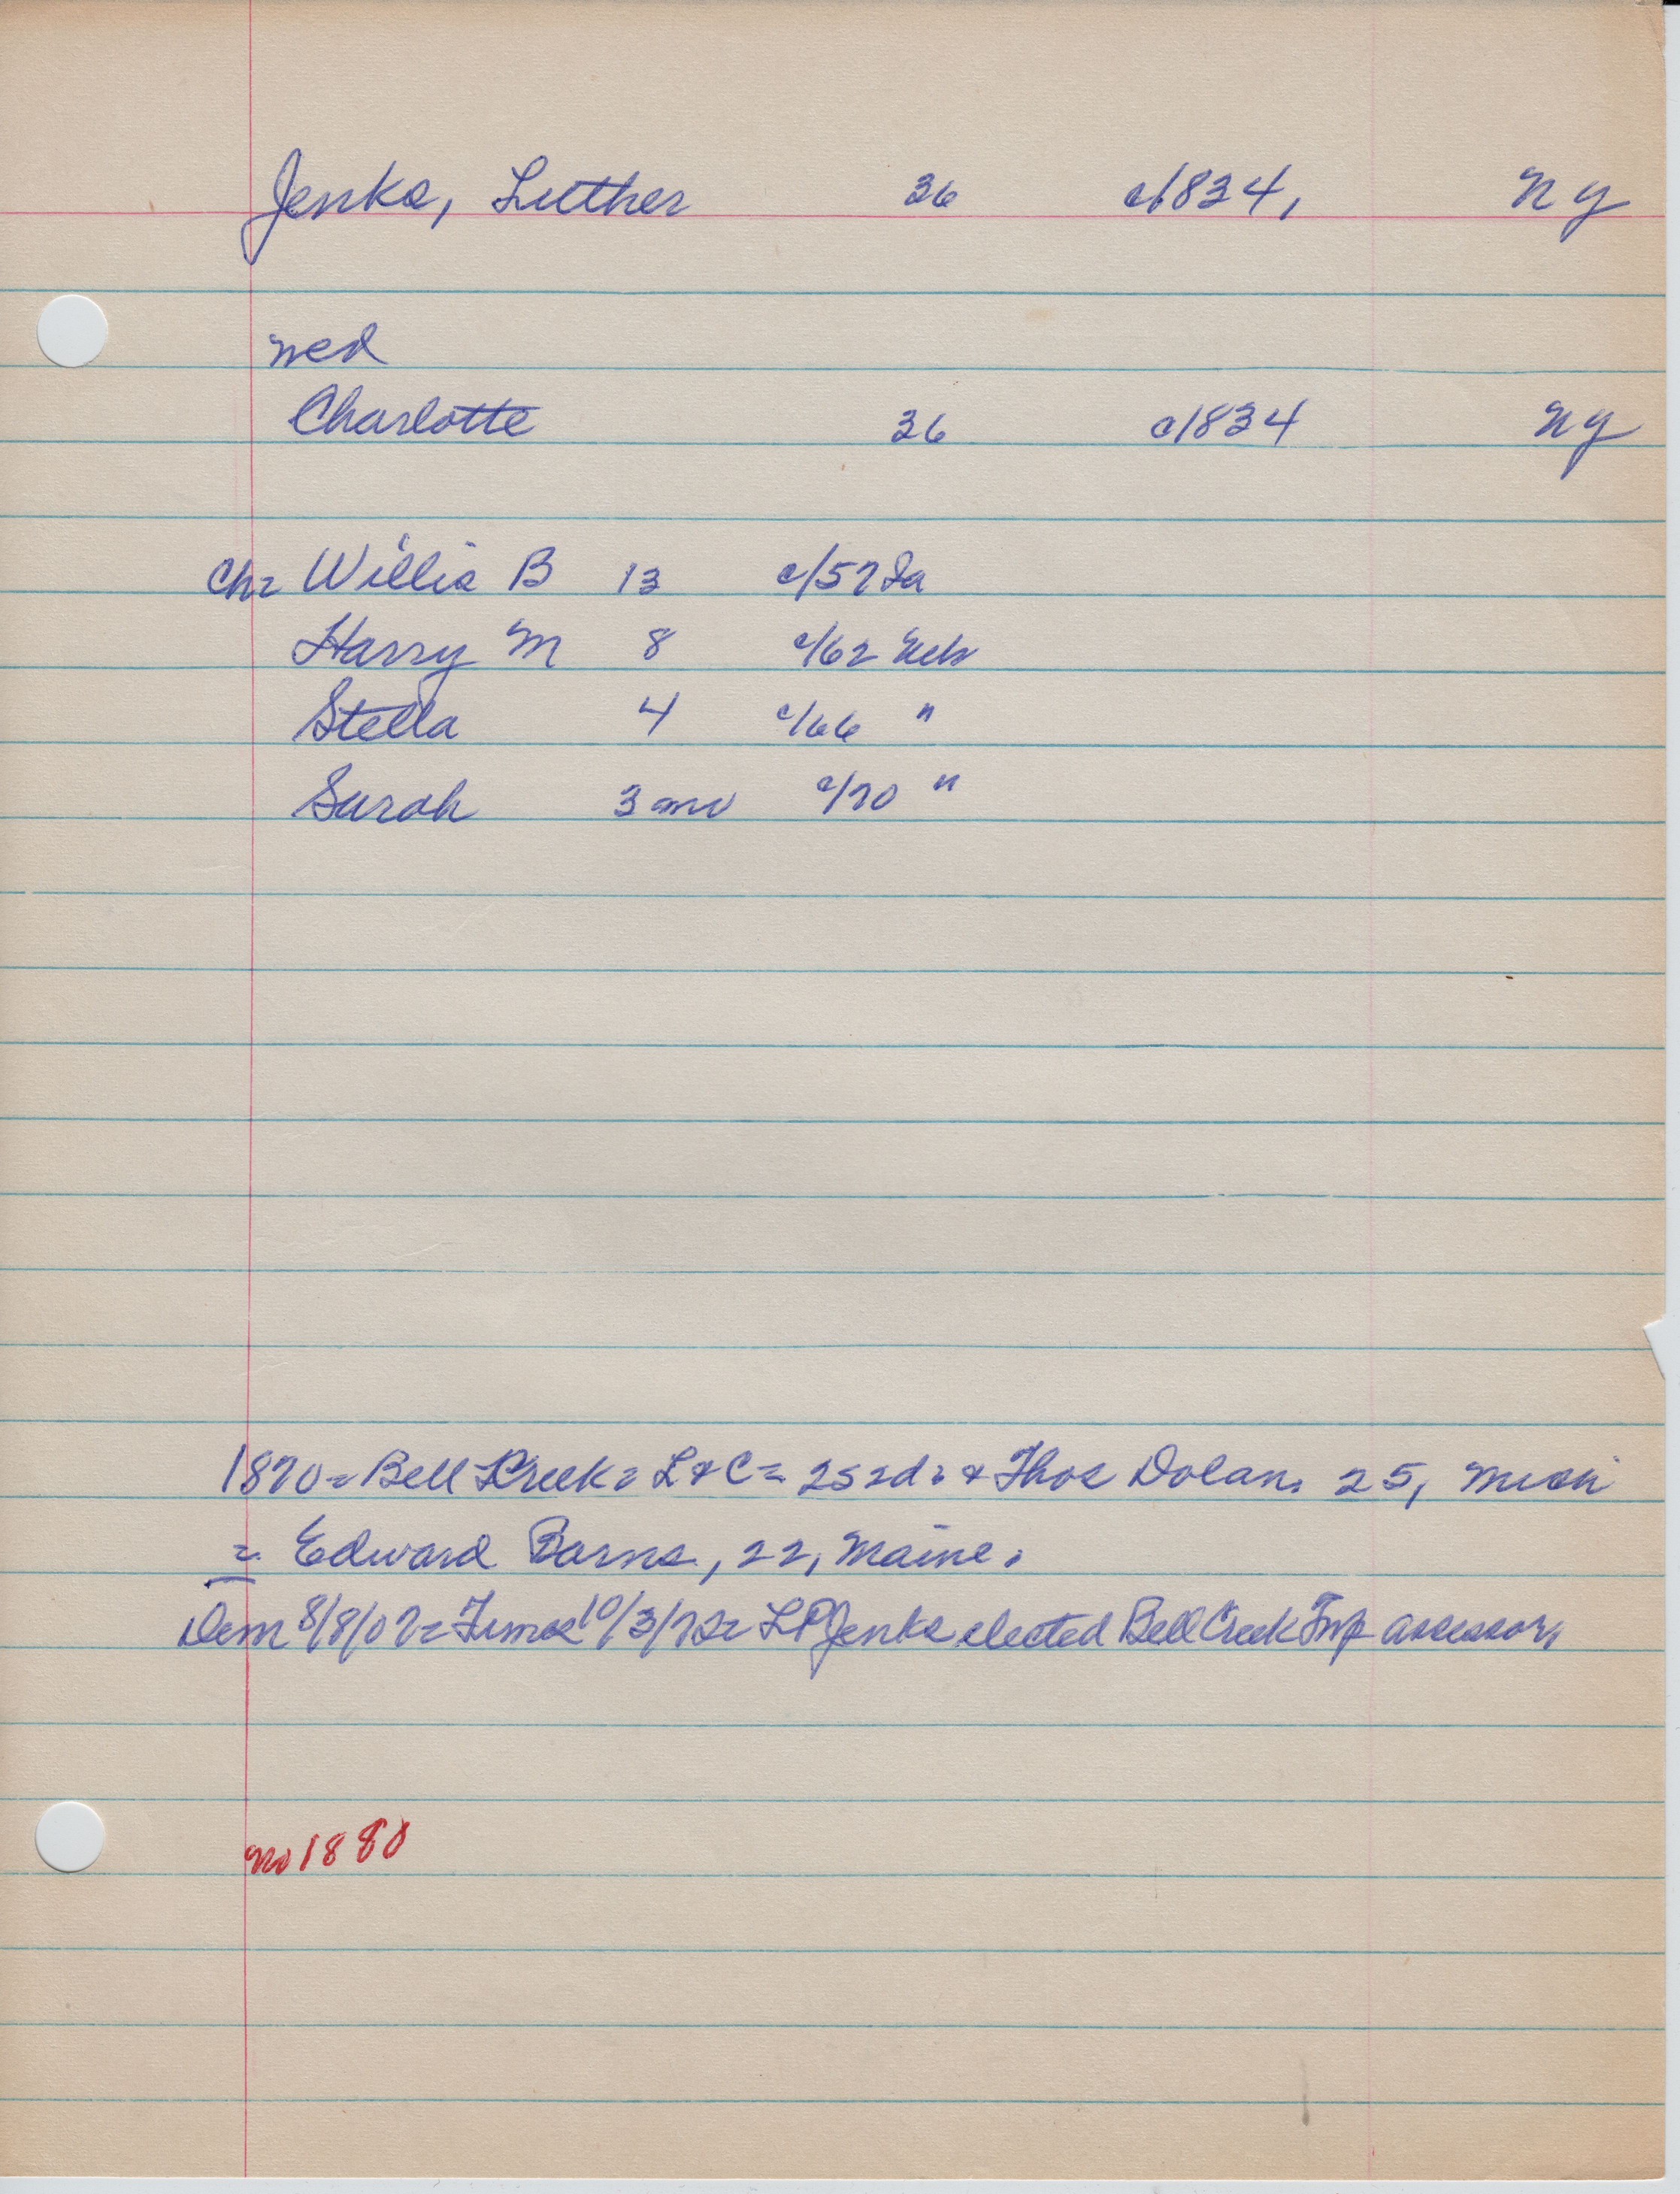 Jenks, Luther 36 c1834, NY
wed
Charlotte 36 c1834 NY
Ch= Willis B 13 c/57 Ia
Harry M 8 c/62 Neb
Stella 4 c/66 "
Sarah 3 mo c/70 "
1870= Bell Creek= L & C= & Thos Dolan. 25,
= Edward Barns, 22, Maine.
Dem 8/8/07= Times 10/3/72= LP Jenks elected Bell Creek Twp assessor,
no 1880